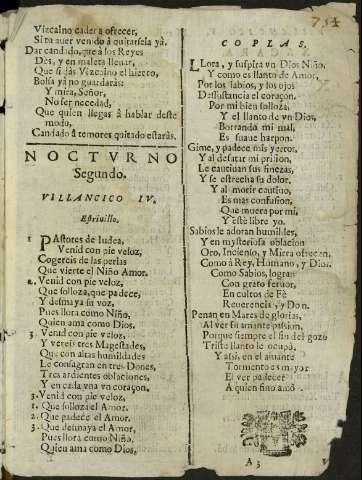 Vizcaino cadera ofrecer,
Si tu auer venido à quitarsela yà.
Dar candado, que à los Reyes
Des, y en maleta llenar,
Que si das Vizcaino el hierro,
Bolsa yà no guardaràs:
Y mira, Señor,
No ser necedad,
Que quien llegas à hablar deste
modo,
Candado à temores quitado estaràs.
NOCTVRNO
Segundo.
VILLANCICO IV.
Estriuillo.
1 PAstores de Iudea,
Venid con pie veloz,
Cogereis de las perlas
Que vierte el Niño Amor.
2. Venid con pie veloz,
Que solloza, que padece,
Y desmaya su voz,
Pues llora como Niño,
Quien ama como Dios.
3. Venid con pie veloz,
Y vereis tres Magestades,
Que con altas humildades
Le consagran en tres Dones,
Tres ardientes oblaciones,
Y en cada vna vn coraçon.
3. Venid con pie veloz.
1. Que solloza el Amor.
2. Que padece el Amor.
3. Que desmaya el Amor,
Pues llora como Niño,
Quien ama como Dios,
754
COPLAS.
LLora, y suspira vn Dios Niño,
Y como es llanto de Amor,
Por los labios, y los ojos
Dessustancia el coraçon.
Por mi bien solloza,
Y el llanto de vn Dios,
Borrando mi mal,
Es suaue harpon.
Gime, y padece mis yerros,
Y al desatar mi prision,
Le cautiuan sus finezas,
Y se estrecha su dolor.
Y al morir cautiuo,
Es mas confusion,
Que muera por mi,
Y estè libre yo.
Sabios le adoran humildes,
Y en mysteriosa oblacion
Oro, Incienso, y Mirra ofrecen,
Como à Rey, Humano, y Dios.
Como Sabios, logran
Con grato feruor,
En cultos de Fè
Reuerencia, y Don.
Penan en Mares de glorias,
Al ver su amante passion,
Porque siempre el fin del gozo
Triste llanto le ocupò.
Y assi, en el amante
Tormento es mayor
El ver padecer
A quien fino amò.
A 3